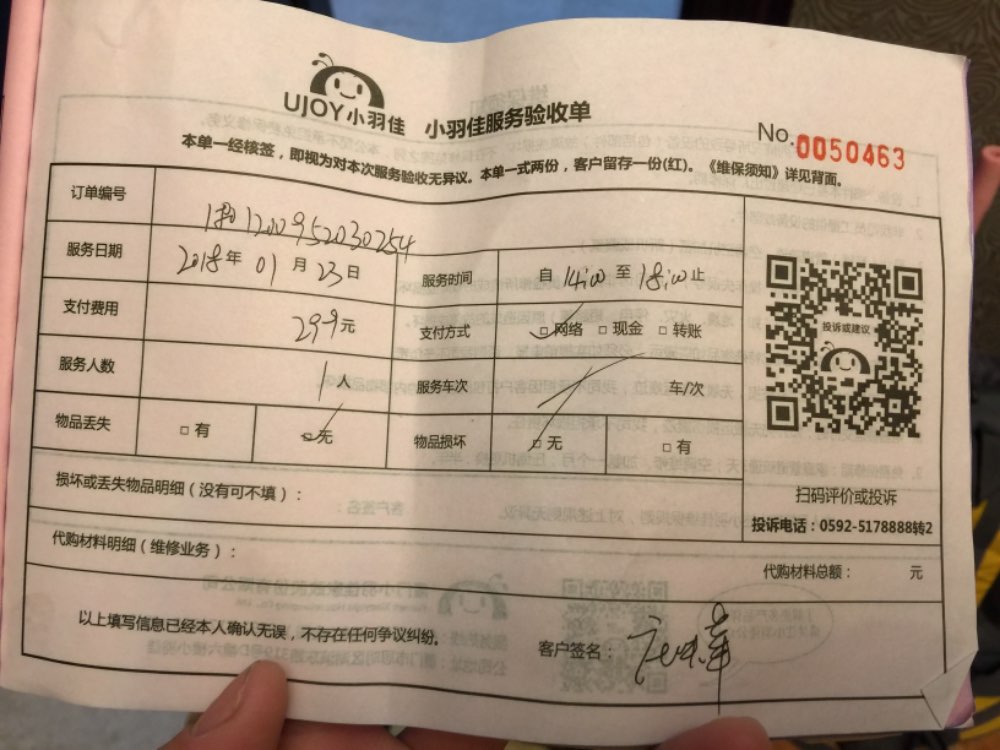 UJOY小羽佳 小羽佳服务验收单
No.0050463
本单一经核签，即视为对本次服务验收无异议。本单一式两份，客户留存一份(红)。《维保须知》详见背面。
订单编号
服务日期 2018年 01月 23日 服务时间 自 14:00 至 18:00 止
支付费用 299元 支付方式 □网络 □现金 □转账
服务人数 1人 服务车次 车/次
物品丢失 □有 □无 物品损坏 □无 □有
投诉或建议
扫码评价或投诉
投诉电话：0592-5178888转2
损坏或丢失物品明细（没有可不填）：
代购材料明细（维修业务）：
代购材料总额： 元
以上填写信息已经本人确认无误，不存在任何争议纠纷。 客户签名：